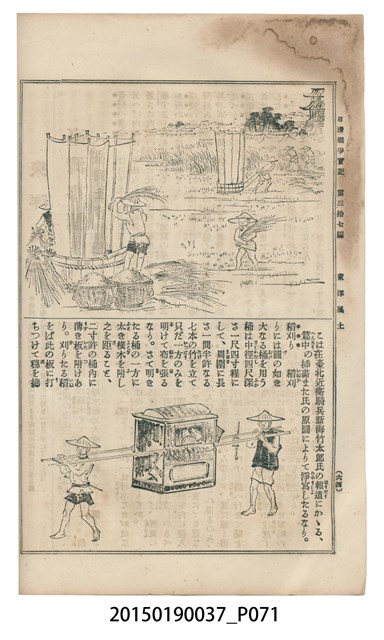 日清戰爭實記 第三拾七編 東洋風土
(六四)
こは在臺北近衛騎兵新海竹太郎氏の報道にかゝる、
篇中の插畫また氏の原圖によりて淨寫したるなり。
稻刈り 稻刈
りには圖の如き
大なる桶を用う
桶は中徑四尺深
さ一尺四寸程に
して、周圍に長
さ一間半許なる
七本の竹を立て
只だ一方のみを
明けて布を張る
なり。さて明き
たる桶の一方に
太き橫木を附し
之を距ること、
二寸許の桶内に
薄き板を附けあ
り。刈りたる稻
をば此の板に打
ちつけて穗を綿
20150190037_P071